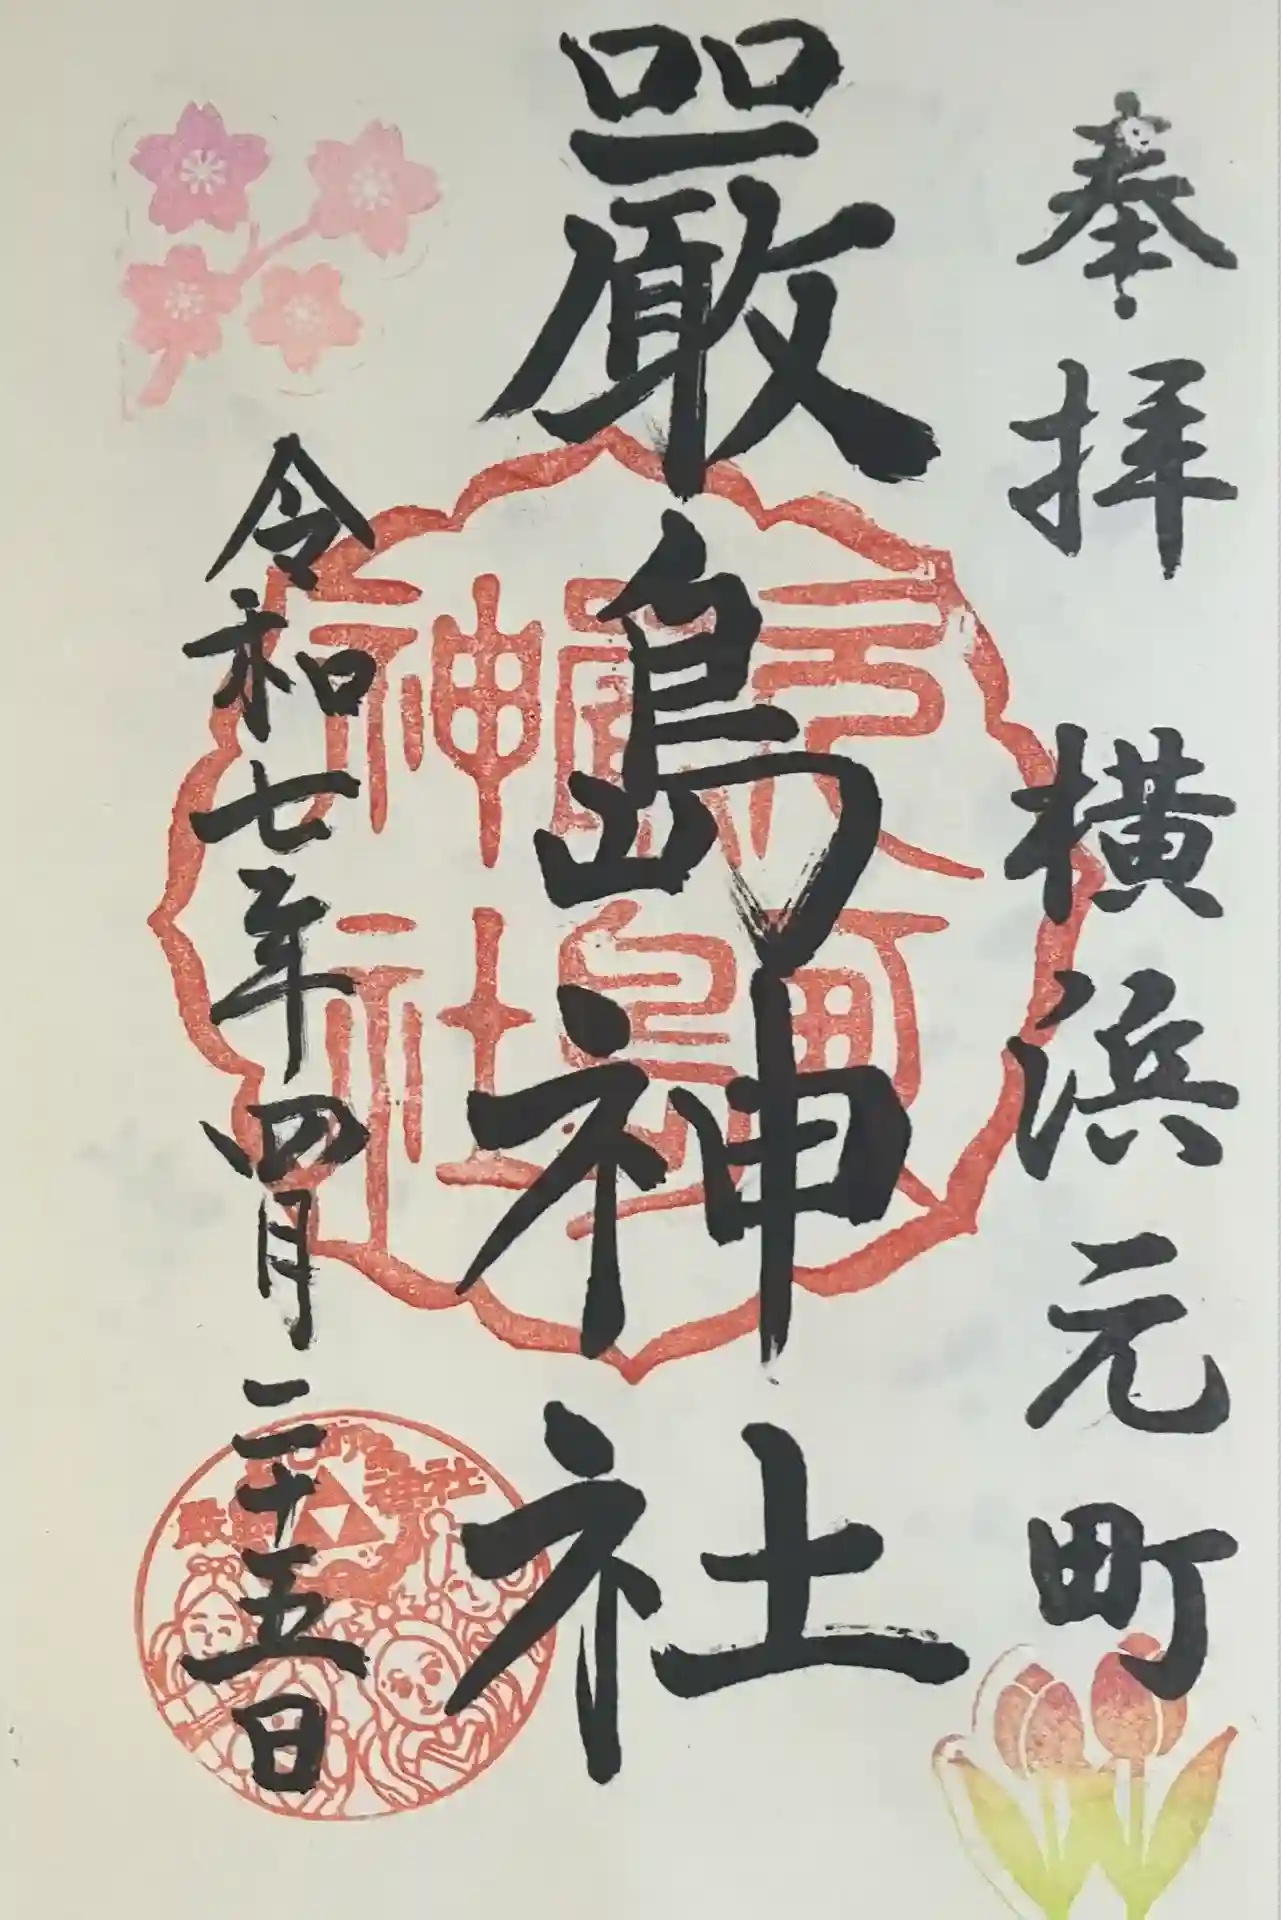 奉拝 横浜元町
嚴島神社
令和七年四月二十五日
元町
嚴島
神社
嚴島神社